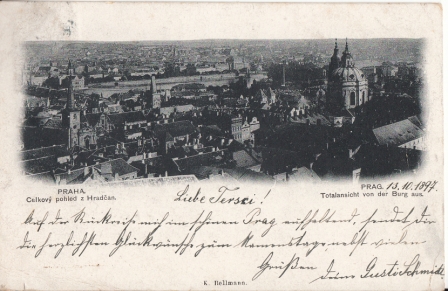 PRAHA.
Celkový pohled z Hradčan.
PRAG. 13.10.1897
Totalansicht von der Burg aus.
Liebe Tersci!
Auf der Rückreise mich im schönen Prag aufhaltend, sendet dir
die herzlichsten Glückwünsche zum Namenstage nebst vielen
Grüßen dein Gusti Schmidt
K. Bellmann.